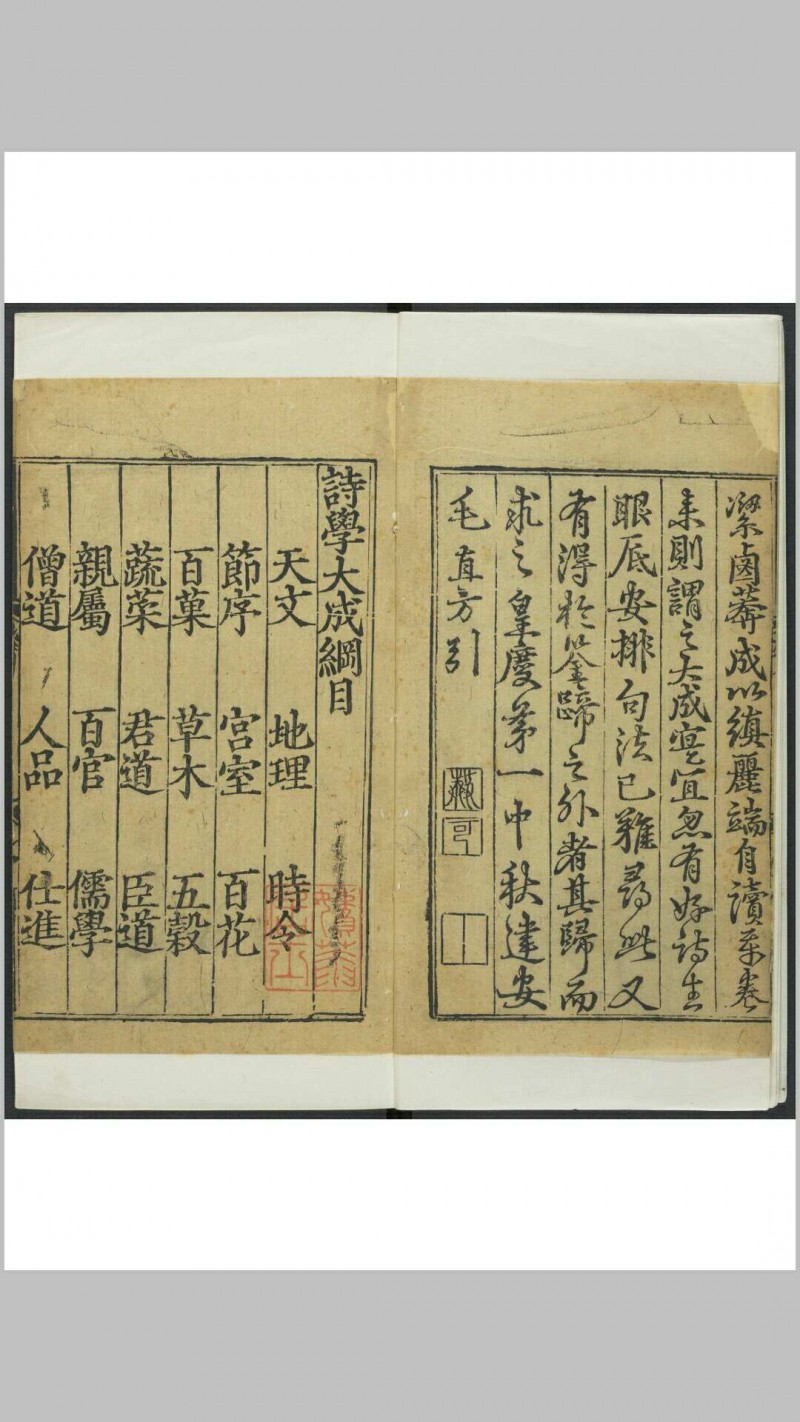 潔鹵莽成以縝麗端自讀万卷
来則謂之大成寔宜忽有好詩生
眼底安排句法已難尋此又
有得於筌蹄之外者其歸而
求之皇慶第一中秋建安
毛直方引
詩學大成綱目
天文 地理 時令
節序 宮室 百花
百菓 草木 五穀
蔬菜 君道 臣道
親屬 百官 儒學
僧道 人品 仕進